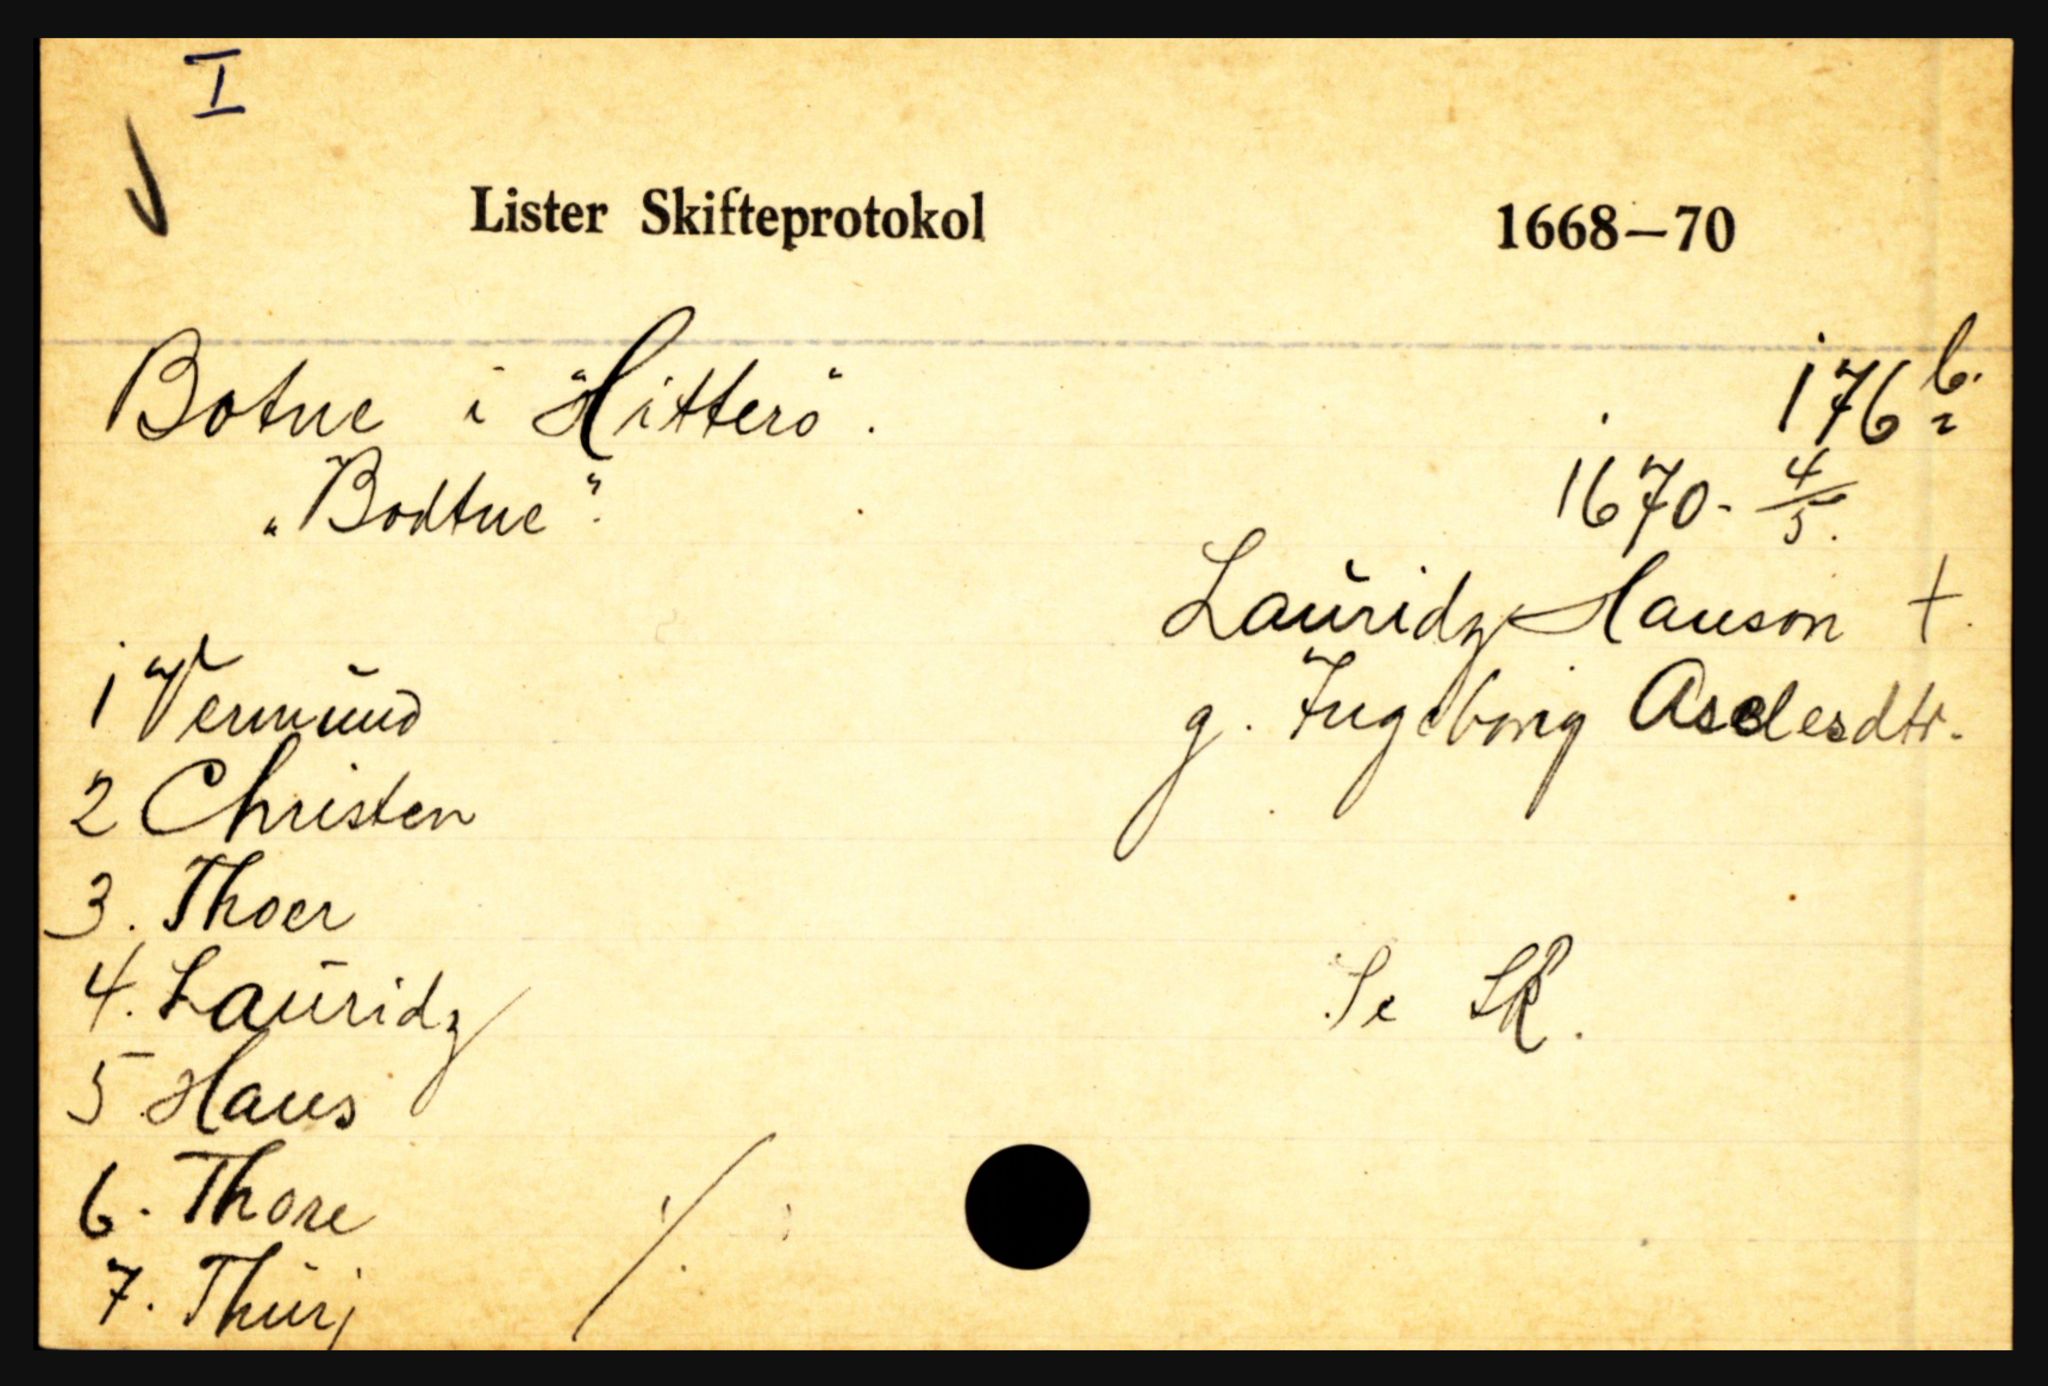 I
Lister Skifteprotokol 1668–70
Botne i "Hitterö". 176 b.
2
"Bodtne". 1670 - 4/5.
Lauridz Hanson †.
1 Vermund g. Ingeborig Asclesdtr.
2 Christen
3. Thoer
4. Lauridz Se SK.
5 Hans
6. Thore
7. Thurj ./.